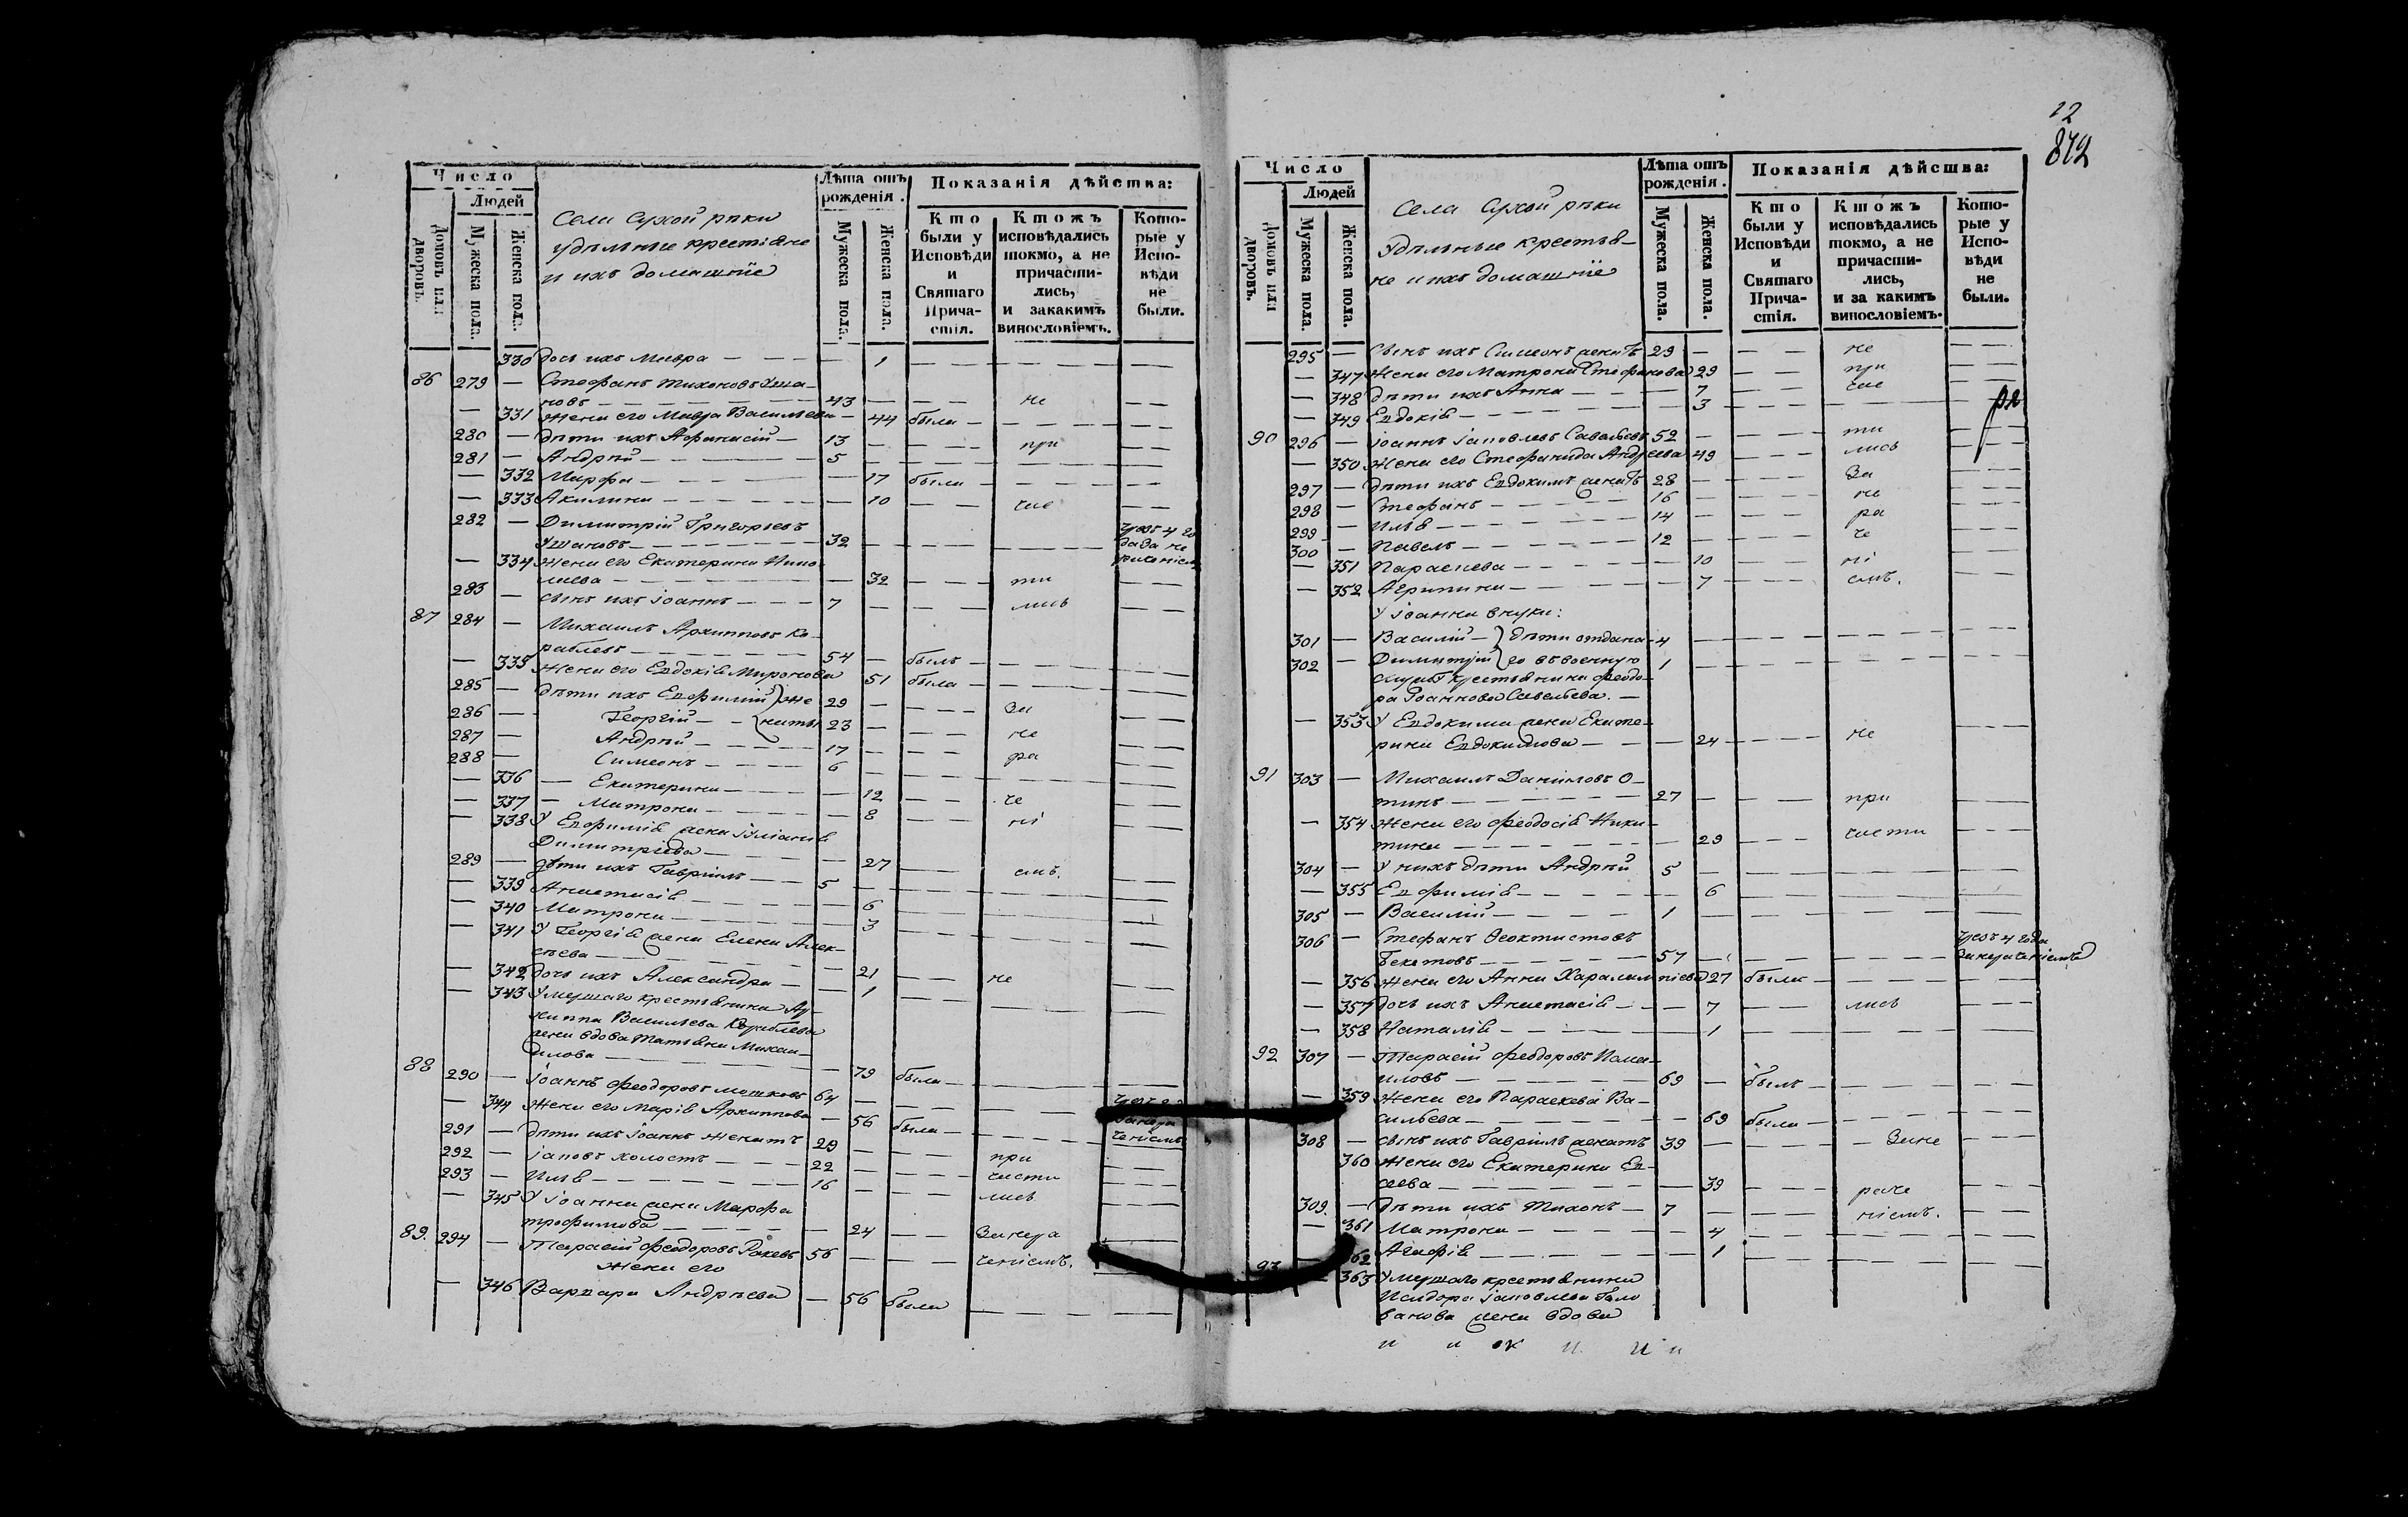 12
842
Число
Людей
Домовъ или дворовъ.
Мужеска пола.
Женска пола.
Села Сухой рѣки
удѣльные крестіяне
и ихъ домашніе
Лѣта отъ рожденія.
Мужеска пола.
Женска пола.
Показанія дѣйства:
Кто были у Исповѣди и Святаго Причастія.
Ктожъ исповѣдались токмо, а не причастились, и закакимъ винословіемъ.
Которые у Исповѣди не были.
330 дочь ихъ Мавра — 1
86 279 — Стефанъ Тихоновъ Уша-
новъ — 43 — не
— 331 Жена его Мавра Васильева — 44 была
280 — дѣти ихъ Афанасій — 13 — при
281 — Андрѣй — 5
— 332 Марфа — 17 была
— 333 Акилина — 10 — час
282 — Димитрій Григорьевъ
Ушаковъ — 32
— 334 Жена его Екатерина
32 — ти
283 — сынъ ихъ Іоаннъ — 7 — лись
87 284 — Михаилъ Архиповъ Ко-
раблевъ — 54 — былъ
— 335 Жена его Евдокія Миронова 51 была
285 — дѣти ихъ Евфимій } же 29 — за
286 — Георгій — } наты 23 — не
287 — Андрѣй — 17 — ра
288 — Симеонъ — 6
— 336 — Екатерина — 12 — че
— 337 — Матрона — 8 — ні
— 338 У Евфимія жена Іуліанія
Димитріева — 27 — емъ.
289 — дѣти ихъ Гавріилъ — 5
— 339 Анастасія — 6
— 340 Матрона — 3
— 341 У Георгія жена Елена Алек-
сѣева — 21 — не
— 342 дочь ихъ Александра — 1
— 343 Умершаго крестьянина Ар-
хиппа Васильева Кораблева
жена вдова Татьяна Михаи-
лова — 79 была
88 290 — Іоаннъ Феодоровъ Мешковъ 64
— 344 Жена его Марія Архиппова — 56 была
291 — дѣти ихъ Іоаннъ женатъ 29 — при
292 — Іаковъ холостъ — 22 — части
293 — Илія — 16 — лись
— 345 У Іоанна жена Марфа
Трофимова — 24 — Занера
89. 294 — Тарасій Феодоровъ Раковъ 56 — ченіемъ.
Жена его
— 346 Варвара Андрѣева — 56 была
Число
Людей
Домовъ или дворовъ.
Мужеска пола.
Женска пола.
Села Сухой рѣки
Удѣльные крестья-
не и ихъ домашніе
Лѣта отъ рожденія.
Мужеска пола.
Женска пола.
Показанія дѣйсшва:
Кто были у Исповѣди и Святаго Причастія.
Ктожъ исповѣдались токмо, а не причастились, и за какимъ винословіемъ.
Которые у Исповѣди не были.
295 — Сынъ ихъ Симеонъ женатъ 29 — не
— 347 Жена его Матрона Стефанова 29 — при
— 348 дѣти ихъ Анна — 7 — час
— 349 Евдокія — 3
90 296 — Іоаннъ Іаковлевъ Савельевъ 52 — ти
— 350 Жена его Стефанида Андреева 49 — лись
297 — дѣти ихъ Евдокимъ женатъ 28 — За
298 — Стефанъ — 16 — не
299 — Илія — 14 — ра
300 — Павелъ — 12 — че
— 351 Параскева — 10 — ні
— 352 Агрипина — 7 — емъ.
У Іоанна внуки:
301 — Василій — } дѣти отдана- 4
302 — Димитрій } го въ военную 1
службу крестьянина Феодо-
ра Іоаннова Савельева. —
— 353 У Евдокима жена Екате-
рина Евдокимова — 24 — не
91 303 — Михаилъ Даниловъ О-
тинъ — 27 — при
— 354 Жена его Феодосія Ники-
тина — 29 — части
304 — У нихъ дѣти Андрѣй 5
— 355 Евфимія — 6
305 — Василій — 1
306 — Стефанъ Феоктистовъ
Бекетовъ — 57
— 356 Жена его Анна Харалампіева 27 была
— 357 дочь ихъ Анастасія — 7 — лись
— 358 Наталія — 1
92 307 — Тарасій Феодоровъ
69 — былъ
— 359 Жена его Параскева Ва-
сильева — 69 была
308 — сынъ ихъ Гавріилъ женатъ 39 — Зане
360 Жена его Екатерина
39 — раче
309. — дѣти ихъ Тихонъ — 7 — ніемъ.
— 361 Матрона — 4
362 Агафія — 1
93 — 363 Умершаго крестьянина
Исидора Іаковлева
жена вдова